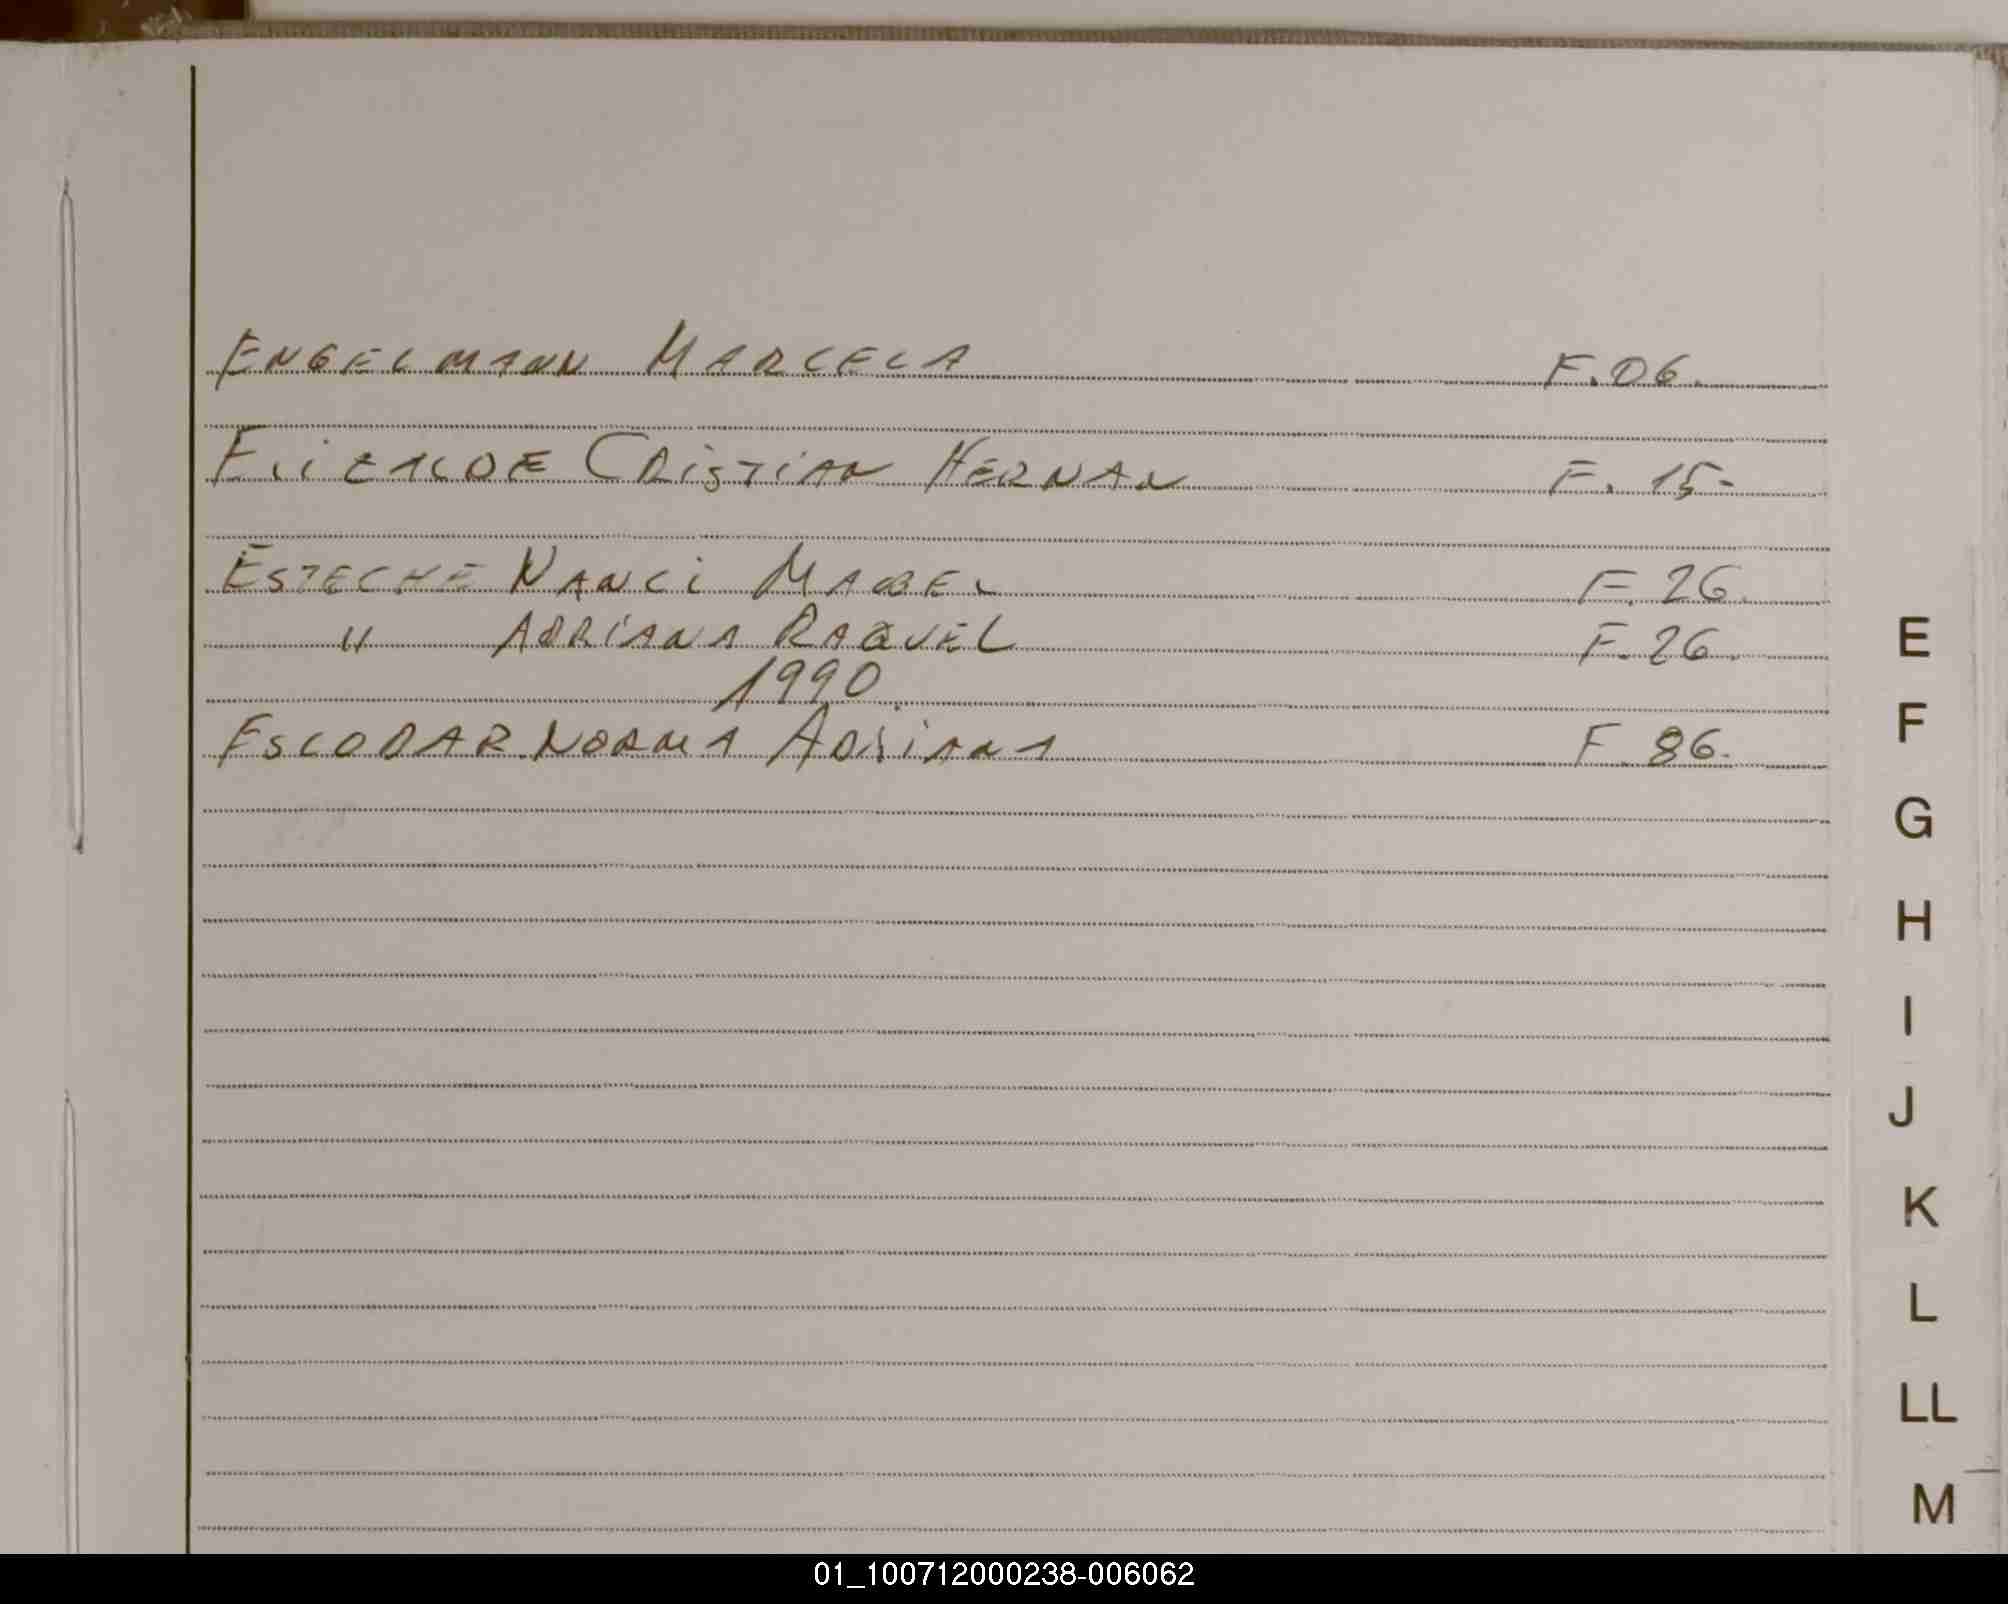 ENGELMANN MARCELA F.06.
ELIZALDE CRISTIAN HERNAN F. 15-
ESTECHE NANCI MABEL F.26.
" ADRIANA RAQUEL F.26.
1990
ESCOBAR NORMA ADRIANA F 86.
E
F
G
H
I
J
K
L
LL
M
01_100712000238-006062